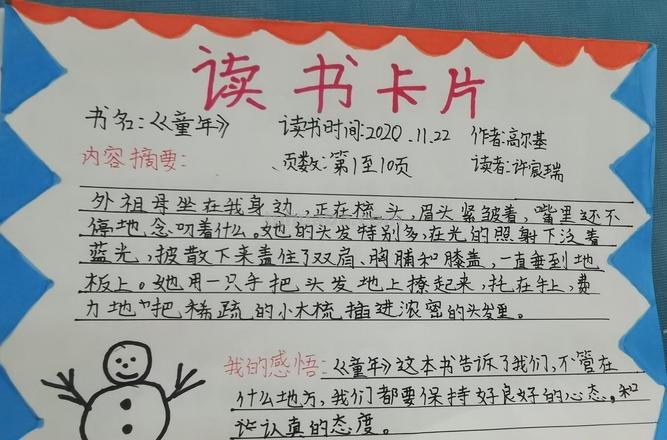 读书卡片
书名:《童年》 读书时间:2020.11.22 作者:高尔基
内容摘要: 页数:第1至10页 读者:许宸瑞
外祖母坐在我身边,正在梳头,眉头紧皱着,嘴里还不
停地念叨着什么。她的头发特别多,在光的照射下泛着
蓝光,披散下来盖住了双肩、胸脯和膝盖,一直垂到地
板上。她用一只手把头发地上撩起来,托在手上,费
力地"把稀疏的小木梳插进浓密的头发里。
我的感悟:《童年》这本书告诉了我们,不管在
什么地方,我们都要保持好良好的心态。和
认真的态度。